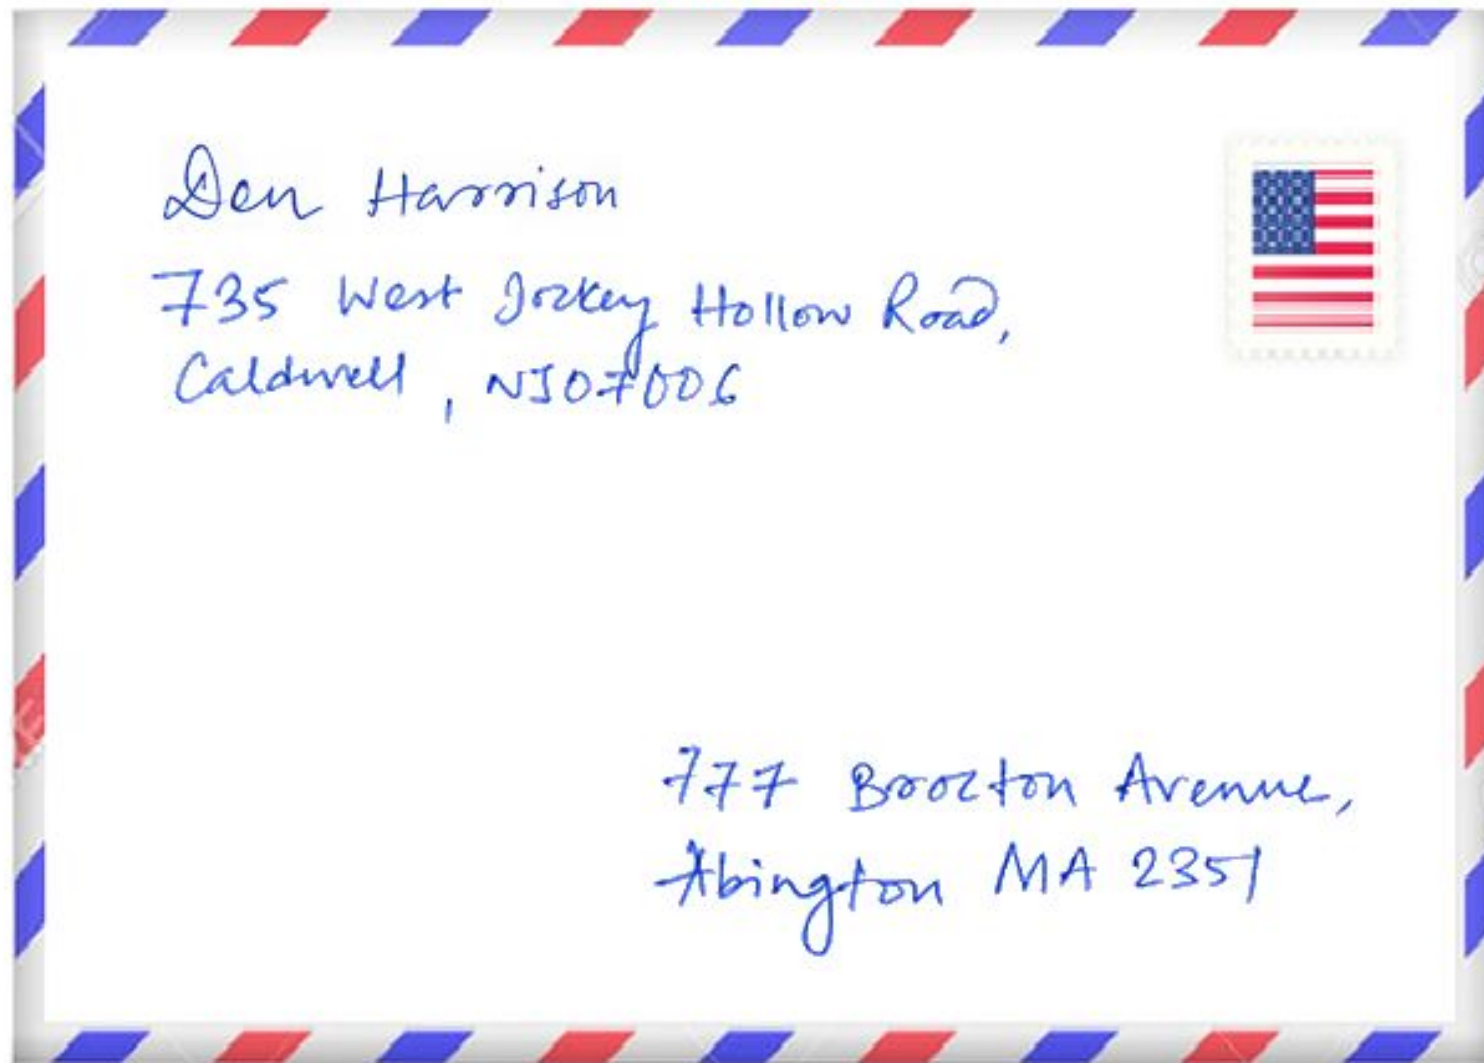 Den Harrison
735 West Jockey Hollow Road,
Caldwell, NJ07006
777 Brocton Avenue,
Abington MA 2351